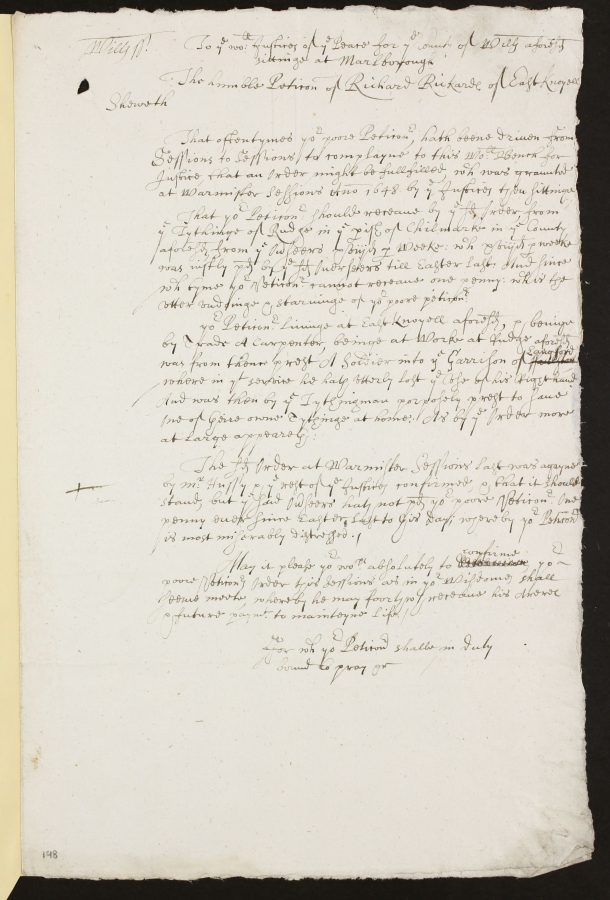 Wilts ss.
To ye wor: Justices of ye Peace for ye County of Wilts aforesd
sittinge at Marleborough
The humble Peticon of Richard Rickard of East Knoyell
Sheweth
That oftentymes yor poore Peticonr hath beene driven from
Sessions to Sessions to complayne to this Wor: Bench for
Justice that an order might be fullfilled wch was graunted
at Warmister Sessions Ano 1648 by ye Justices then sittinge
That yor Peticonr should receave by ye sd Order from
ye Tythinge of Rudge in ye pish of Chilmarke in ye County
aforesd from ye Ovseers p Weeke: wch p weeke
was justly pd by ye sd Overseers till Easter last. And since
wch tyme yor Peticonr cannot receave one penny: wch is the
utter & starvinge of yor poore peticonr
yor Peticonr livinge at East Knoyell aforesd, &
by Trade A Carpenter, beinge at Worke at Rudge aforesd
was from thence prest A Soldier into ye Garrison of Langford
where in yt service he hath utterly lost ye use of his Right hand
And was then by ye Tythingman porposely prest to save
one of there owne Tythinge at home: As by ye Order more
at large appeareth:
The sd Order at Warmister Sessions last was agayne
by Mr Hussy & ye rest of ye Justices confirmed & that it should
stand, but ye said Ovseers hath not pd yor poore Peticonr One
penny ever since Easter last to this day, whereby yor Peticonr
is most miserably distressed.
May it please yor worps absolutely to confirme yor
poore Peticonrs Order this Sessions as in yor Wisdomes shall
seeme meete, whereby he may forthwth receave his Arere
& future paymt to mainteyne life
For wch yor Peticonr shalbe in duty
bound to pray &c
148